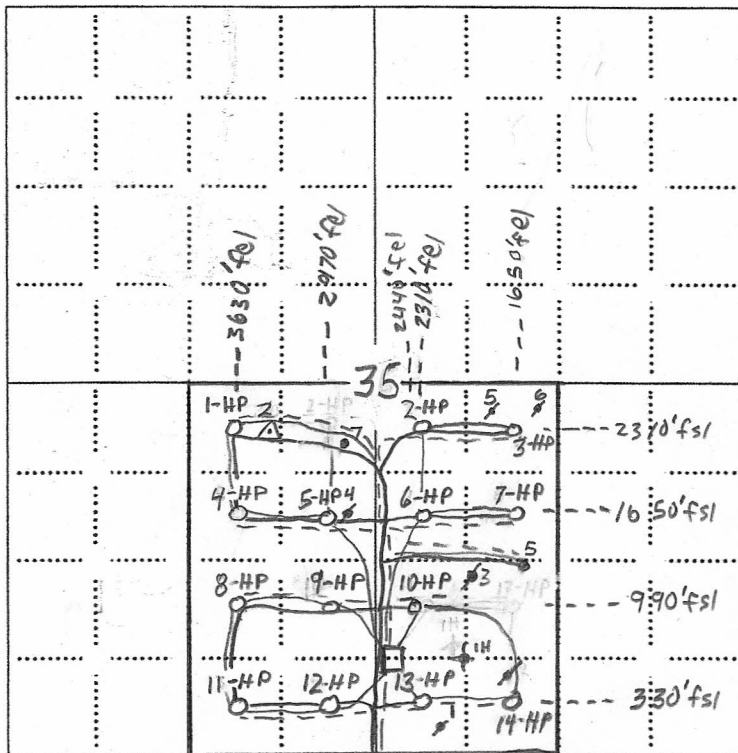 3630'fel
2970'fel
2440'fel
2310'fel
1650'fel
35
1-HP
2
7
2-HP
5
6
3-HP
2310'fsl
4-HP
5-HP
4
6-HP
7-HP
1650'fsl
5
8-HP
9-HP
10-HP
3
990'fsl
1H
11-HP
12-HP
13-HP
1
14-HP
330'fsl